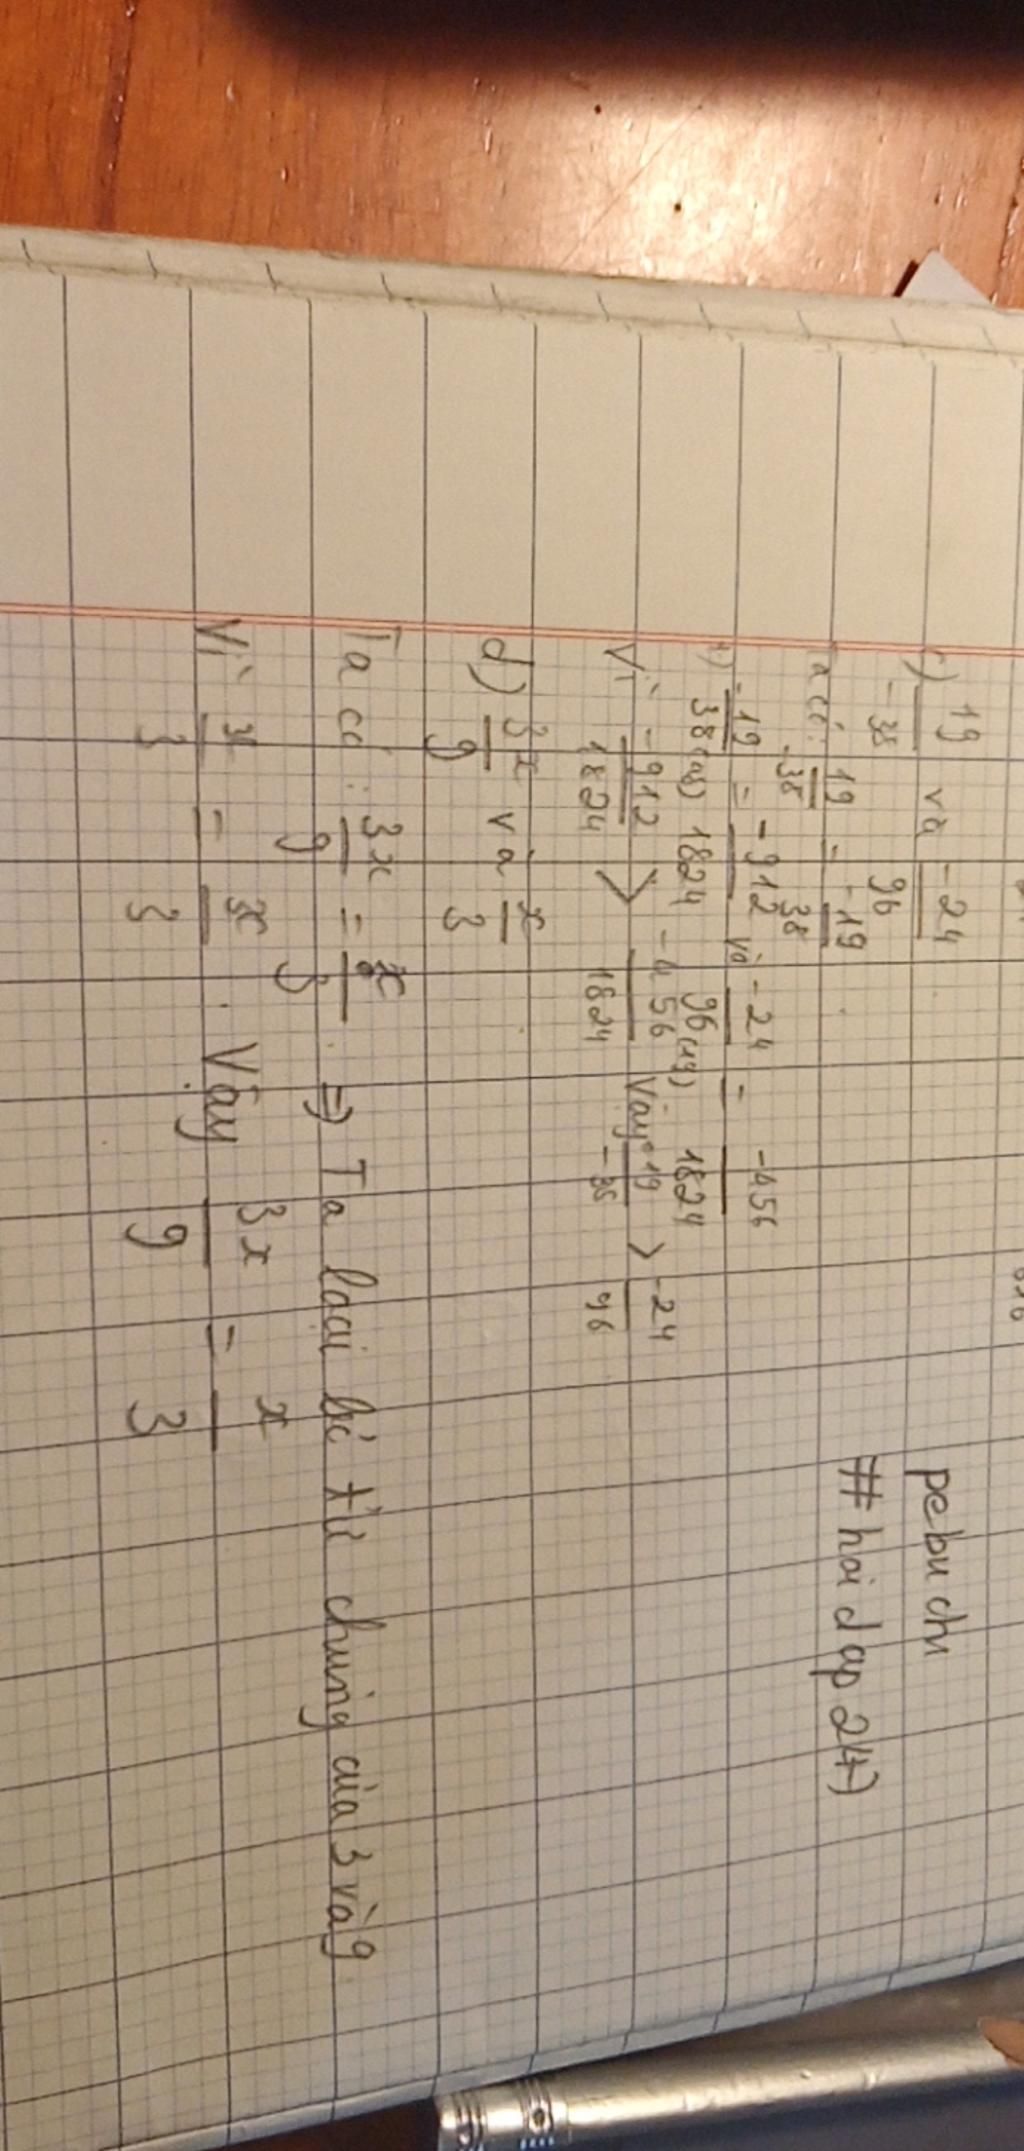 c) 19/-38 và -24/96
Ta có: 19/-38 = -19/38
*) -19/38 = -912/1824 và -24/96(19) = -456/1824
Vì -912/1824 > -456/1824 Vậy 19/-38 > -24/96
d) 3x/9 và x/3
Ta có: 3x/9 = x/3 => Ta loại bỏ từ chung của 3 và 9
Vì x/3 = x/3. Vậy 3x/9 = x/3
pebuchi
# hoi dap 247)